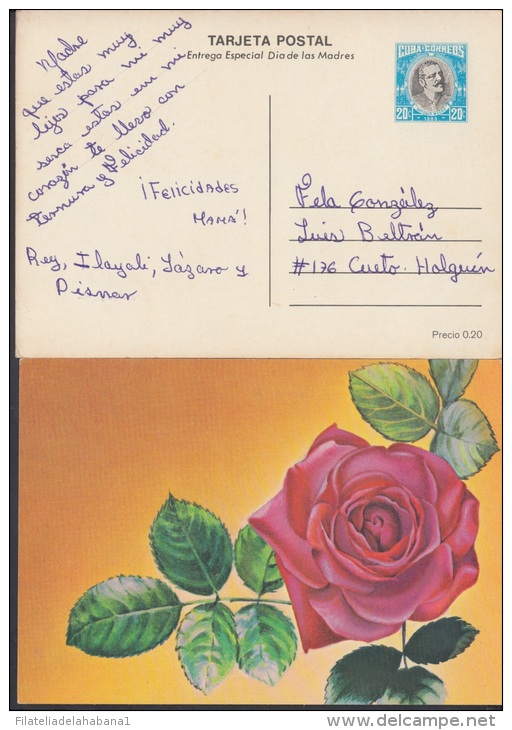 TARJETA POSTAL
Entrega Especial Dia de las Madres
CUBA·CORREOS
20¢ 20¢
1983
Madre
que estas muy
lejos para mi muy
serca estas em mi
corazón te llevo con
ternura y Felicidad.
¡FELICIDADES
MAMÁ!
Rey, Ilayali, Lázaro y
Disnar
Fela González
Luis Beltrán
#176 Cueto. Holguín
Precio 0.20
Filateliadelahabana1
www.delcampe.net